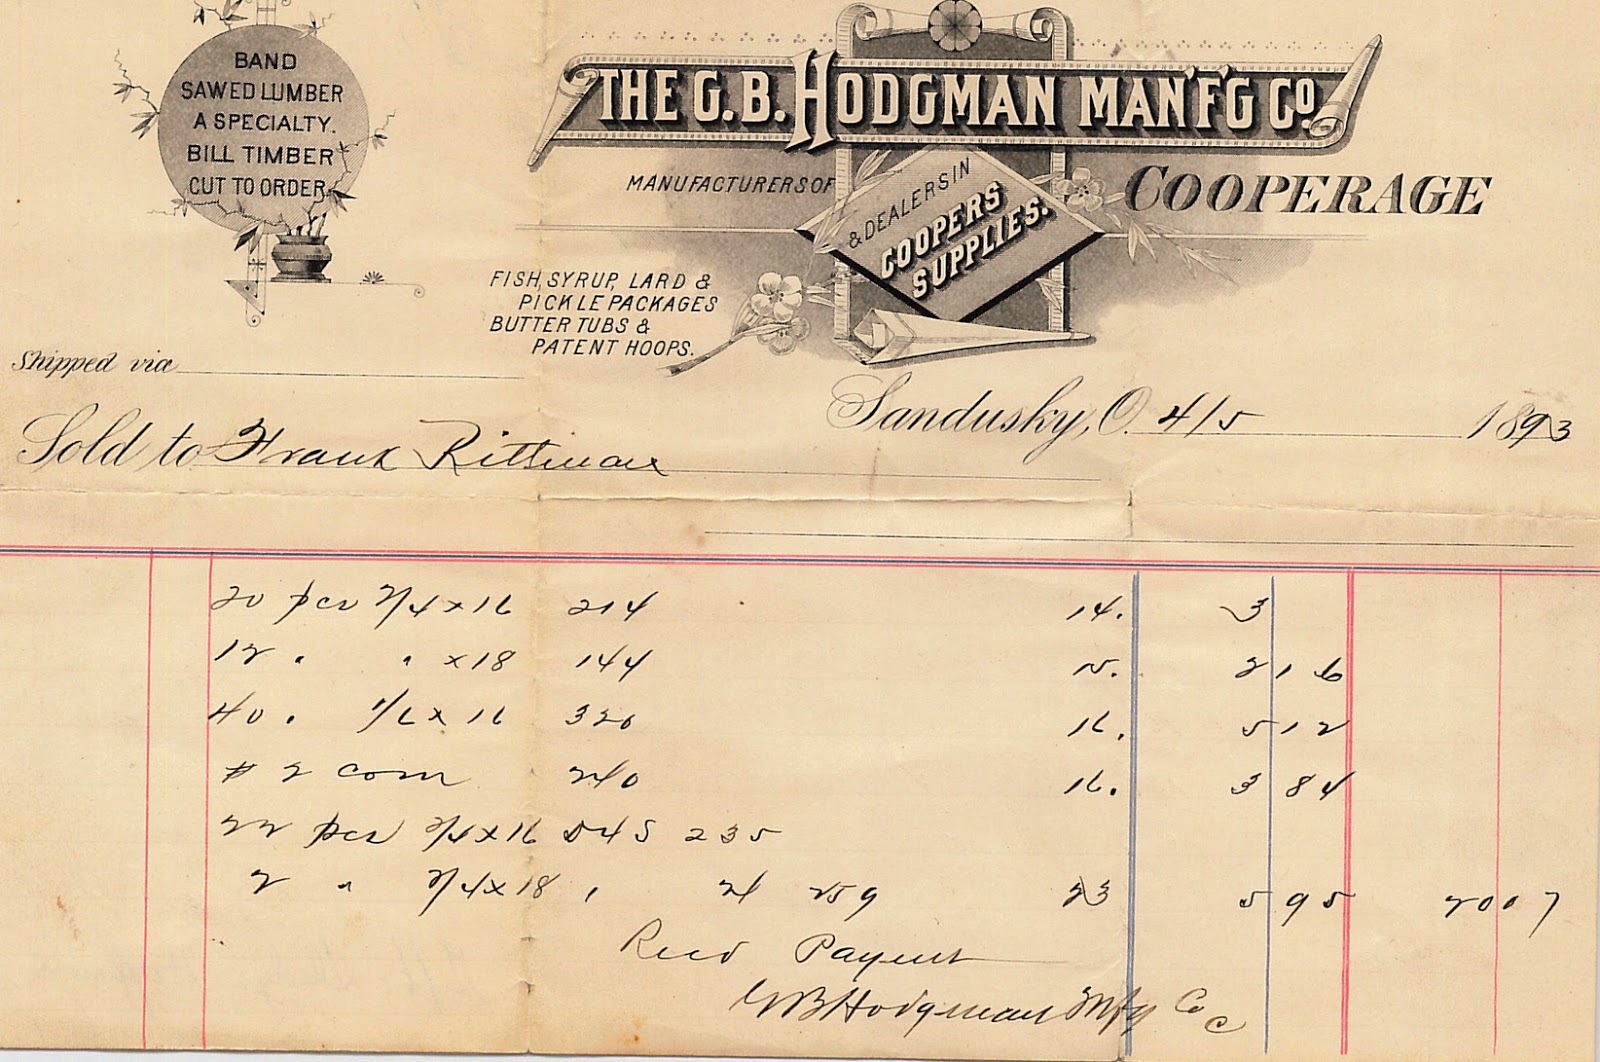 BAND
SAWED LUMBER
A SPECIALTY.
BILL TIMBER
CUT TO ORDER.
THE G.B. HODGMAN MAN'F'G CO.
MANUFACTURERS OF COOPERAGE
& DEALERS IN
COOPERS
SUPPLIES.
FISH, SYRUP, LARD &
PICKLE PACKAGES
BUTTER TUBS &
PATENT HOOPS.
Shipped via
Sandusky, O. 4/5 1893
Sold to Frank Rittman
20 pcs 2/4 x 16 214 14. 3
12 " " x 18 144 15. 2 16
40 " 1/6 x 16 320 16. 5 12
# 2 com 240 16. 3 84
22 pcs 2/4 x 16 D4S 235
2 " 2/4 x 18 " 24 259 23 5 95 20 07
Recd Payment
GB Hodgman Mfg Co